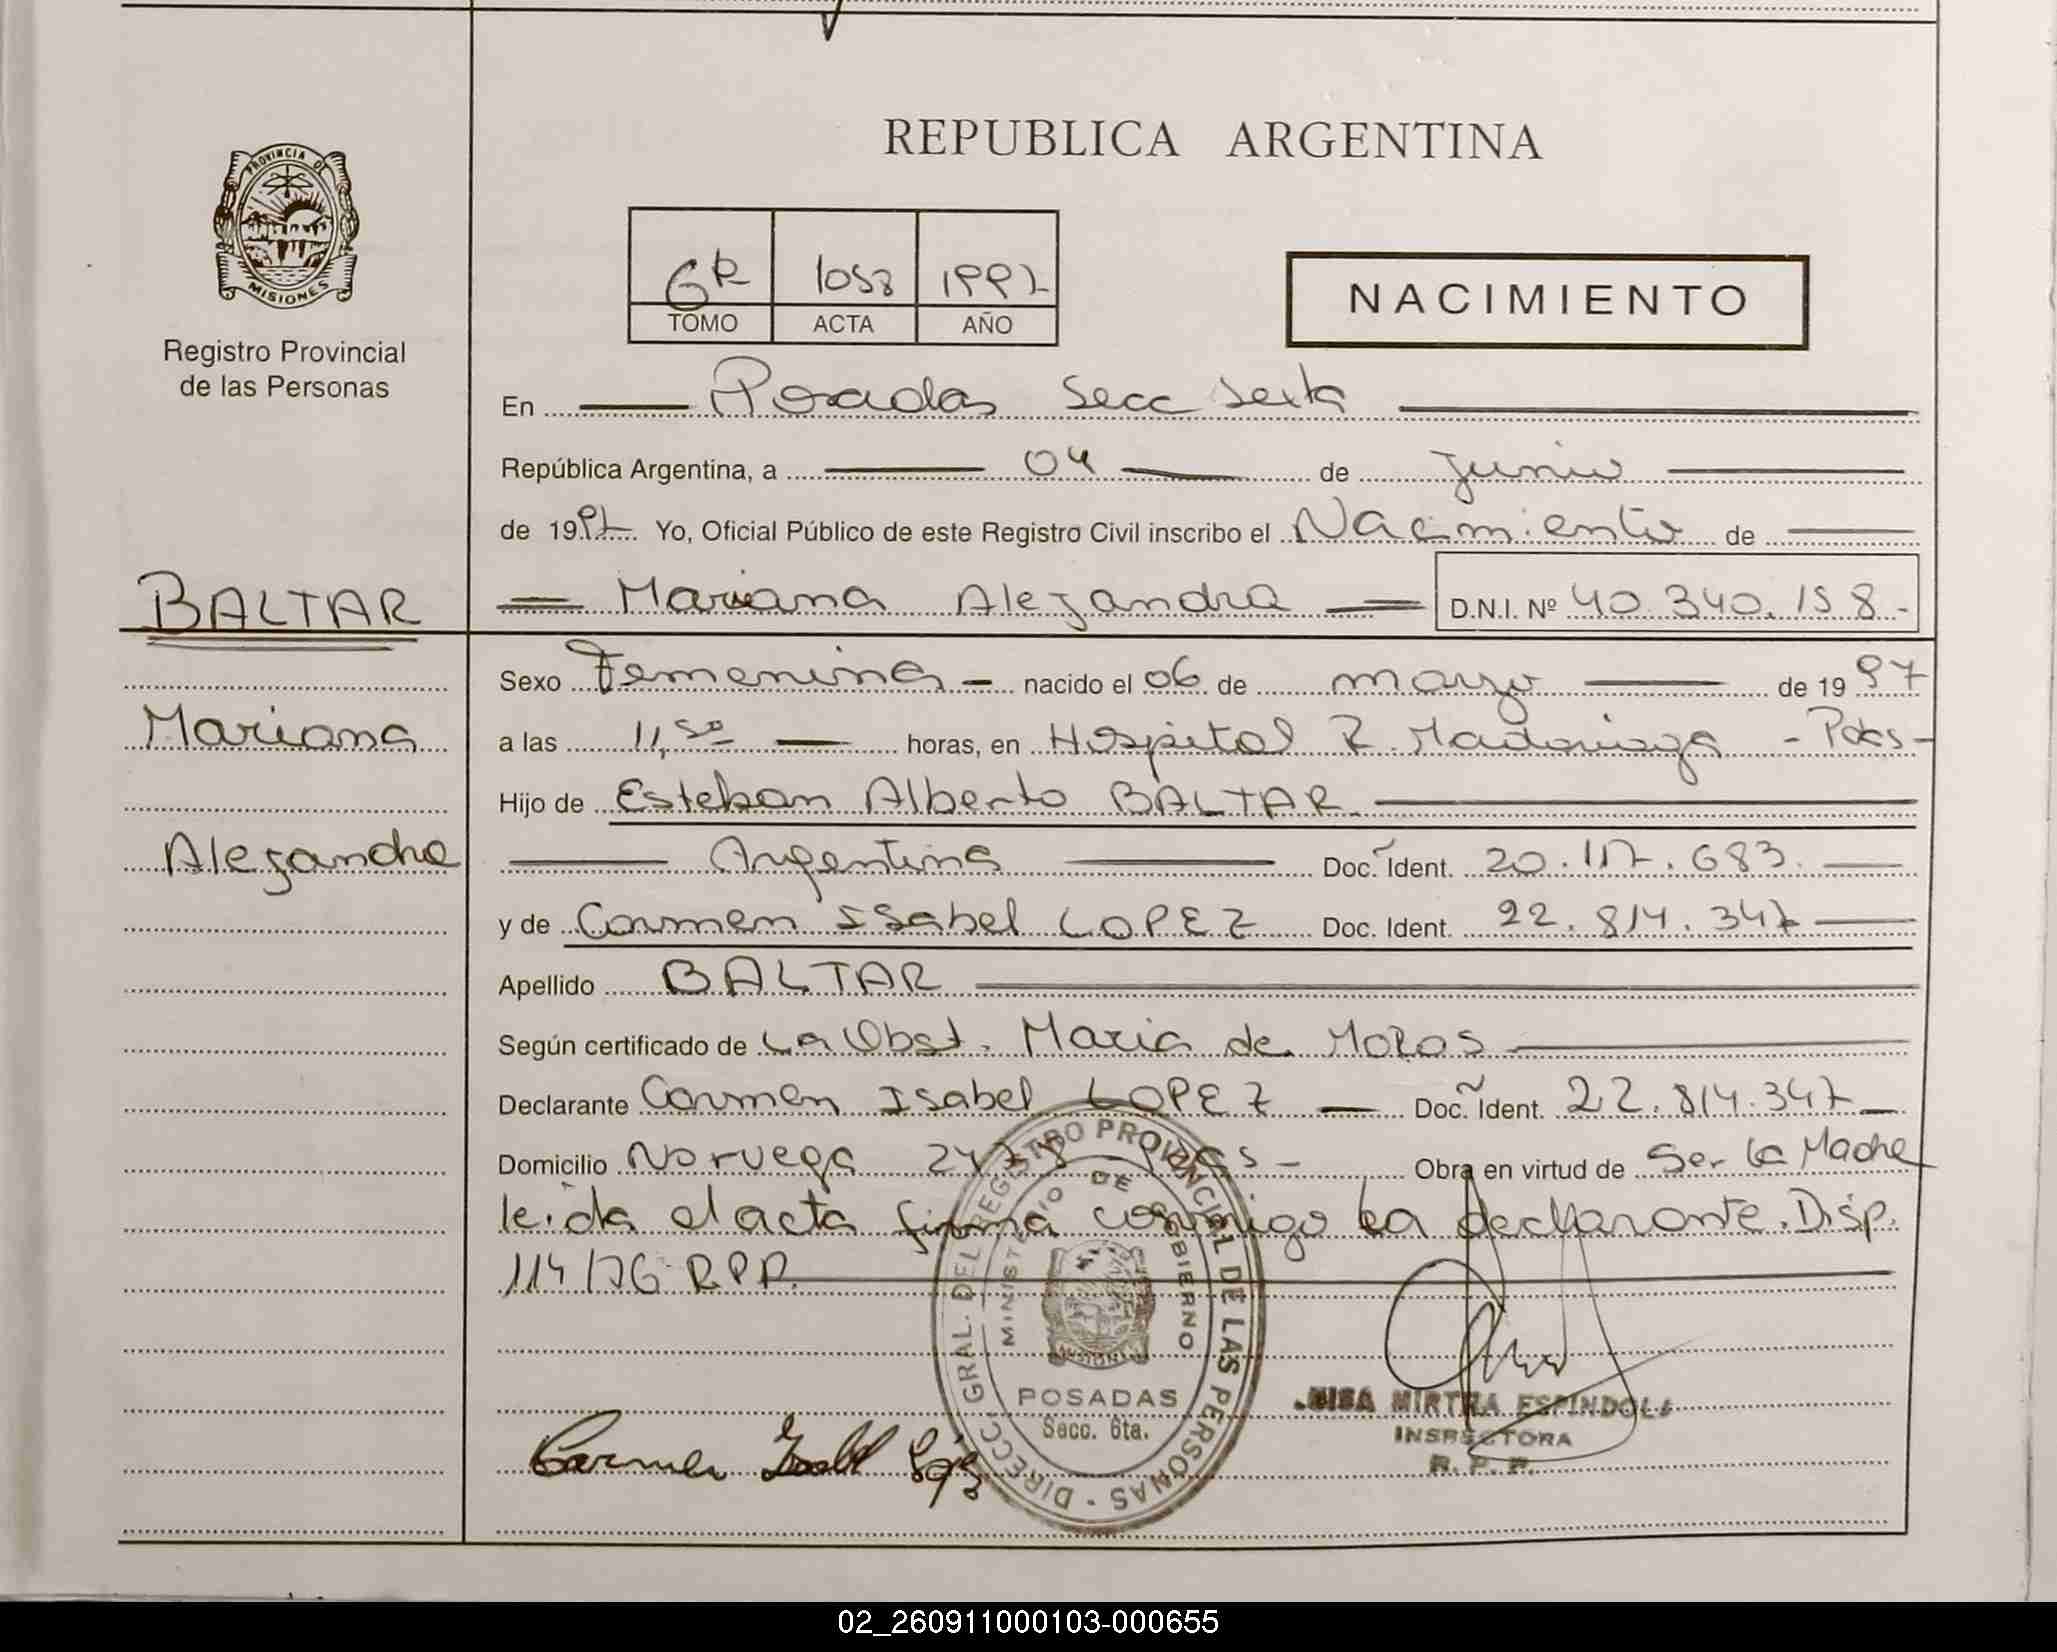 REPUBLICA ARGENTINA
PROVINCIA DE
MISIONES
Registro Provincial
de las Personas
6R 1058 1997
TOMO ACTA AÑO
NACIMIENTO
En Posadas Secc Sexta
República Argentina, a 04 de Junio
de 1997 Yo, Oficial Público de este Registro Civil inscribo el Nacimiento de
BALTAR
Mariana Alejandra D.N.I. Nº 40.340.158.-
Sexo Femenina - nacido el 06 de mayo de 1997
Mariana
a las 11,50 horas, en Hospital R. Madariaga - Pdas -
Hijo de Esteban Alberto BALTAR
Alejandra
Argentina Doc. Ident. 20.117.683.
y de Carmen Isabel LOPEZ Doc. Ident. 22.814.347
Apellido BALTAR
Según certificado de La Obst. Maria de Moras
Declarante Carmen Isabel LOPEZ Doc. Ident. 22.814.347
Domicilio Noruega 2478 Pdas - Obra en virtud de Ser la Madre
leida el acta firma conmigo la declarante. Disp.
114/76 R.P.P.
DIRECC. GRAL. DEL REGISTRO PROVINCIAL DE LAS PERSONAS
MINISTERIO DE GOBIERNO
MISIONES
POSADAS
Secc. 6ta.
MIRTHA ESPINDOLA
INSPECTORA
R. P. P.
Carmen Isabel López
02_260911000103-000655